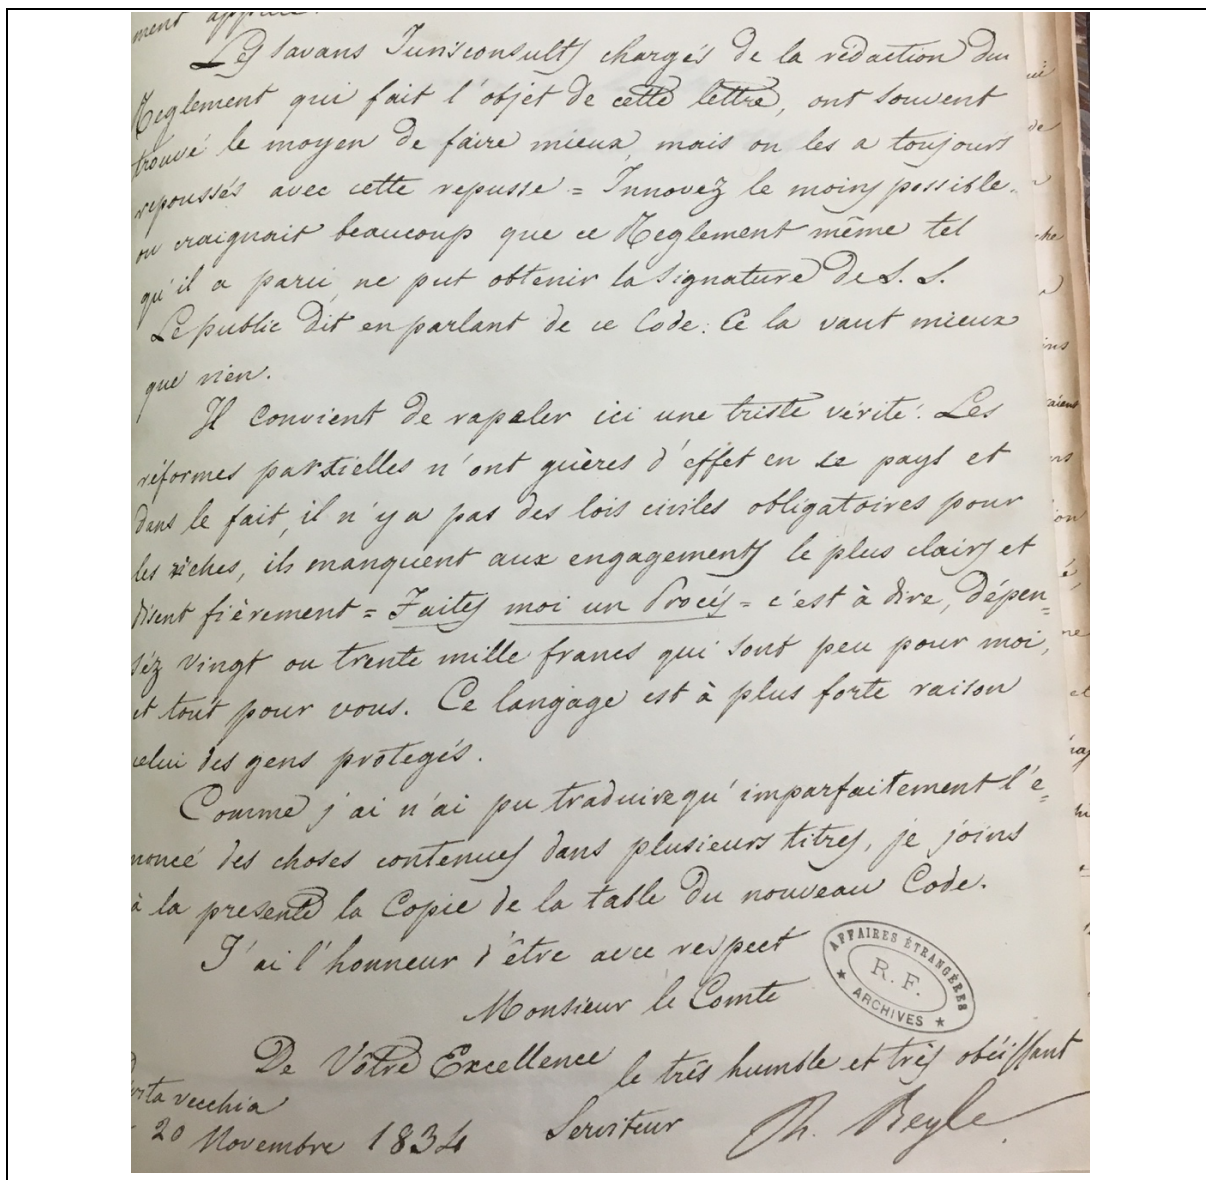 ment
Les savans Jurisconsults chargés de la rédaction du
Reglement qui fait l'objet de cette lettre, ont souvent
trouvé le moyen de faire mieux, mais on les a toujours
repoussés avec cette repusse = Innovez le moins possible.
on craignait beaucoup que ce Reglement même tel
qu'il a paru, ne put obtenir la signature de S. S.
Le public dit en parlant de ce Code: Ce la vaut mieux
que rien.
Il convient de rapeler ici une triste vérité: Les
réformes partielles n'ont guères d'effet en ce pays et
dans le fait, il n'y a pas des lois civiles obligatoires pour
les riches, ils manquent aux engagements le plus clairs et
disent fièrement = Faites moi un Procés = c'est à dire, dépen=
séz vingt ou trente mille francs qui sont peu pour moi,
et tout pour vous. Ce langage est à plus forte raison
celui des gens protegés.
Comme j'ai n'ai pu traduire qu'imparfaitement l'e=
noncé des choses contenues dans plusieurs titres, je joins
à la presente la Copie de la table du nouveau Code.
J'ai l'honneur d'être avec respect
Monsieur le Comte
AFFAIRES ÉTRANGÈRES
R. F.
ARCHIVES
De Vôtre Excellence
le très humble et très obéissant
Serviteur
vita vecchia
20 Novembre 1834
Beyle